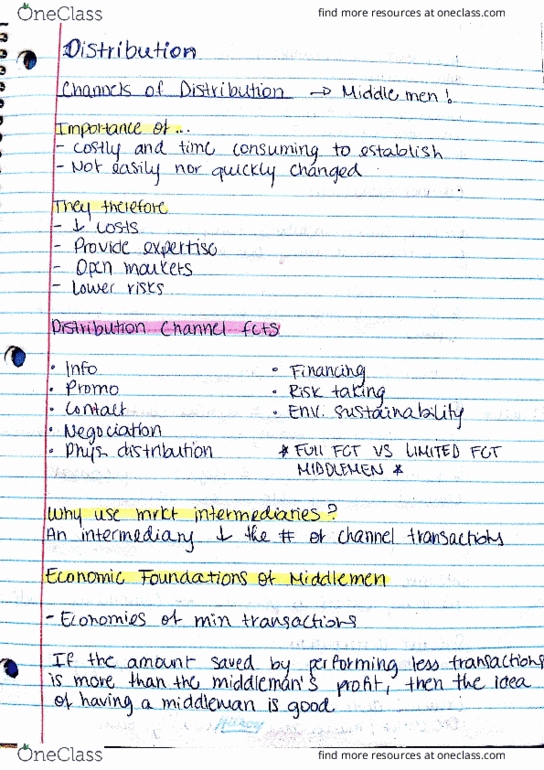 OneClass
find more resources at oneclass.com
Distribution
Channels of Distribution → Middle men!
Importance of...
- costly and time consuming to establish
- Not easily nor quickly changed
They therefore
- ↓ costs
- Provide expertise
- Open markets
- Lower risks
Distribution Channel fcts
• Info
• Promo
• Contact
• Negociation
• Phys. distribution
• Financing
• Risk taking
• Env. sustainability
* FULL FCT VS LIMITED FCT
MIDDLEMEN *
Why use mrkt intermediaries?
An intermediary ↓ the # of channel transactions
Economic Foundations of Middlemen
- Economies of min transactions
If the amount saved by performing less transactions
is more than the middleman's profit, then the idea
of having a middleman is good.
Hilroy
OneClass
find more resources at oneclass.com